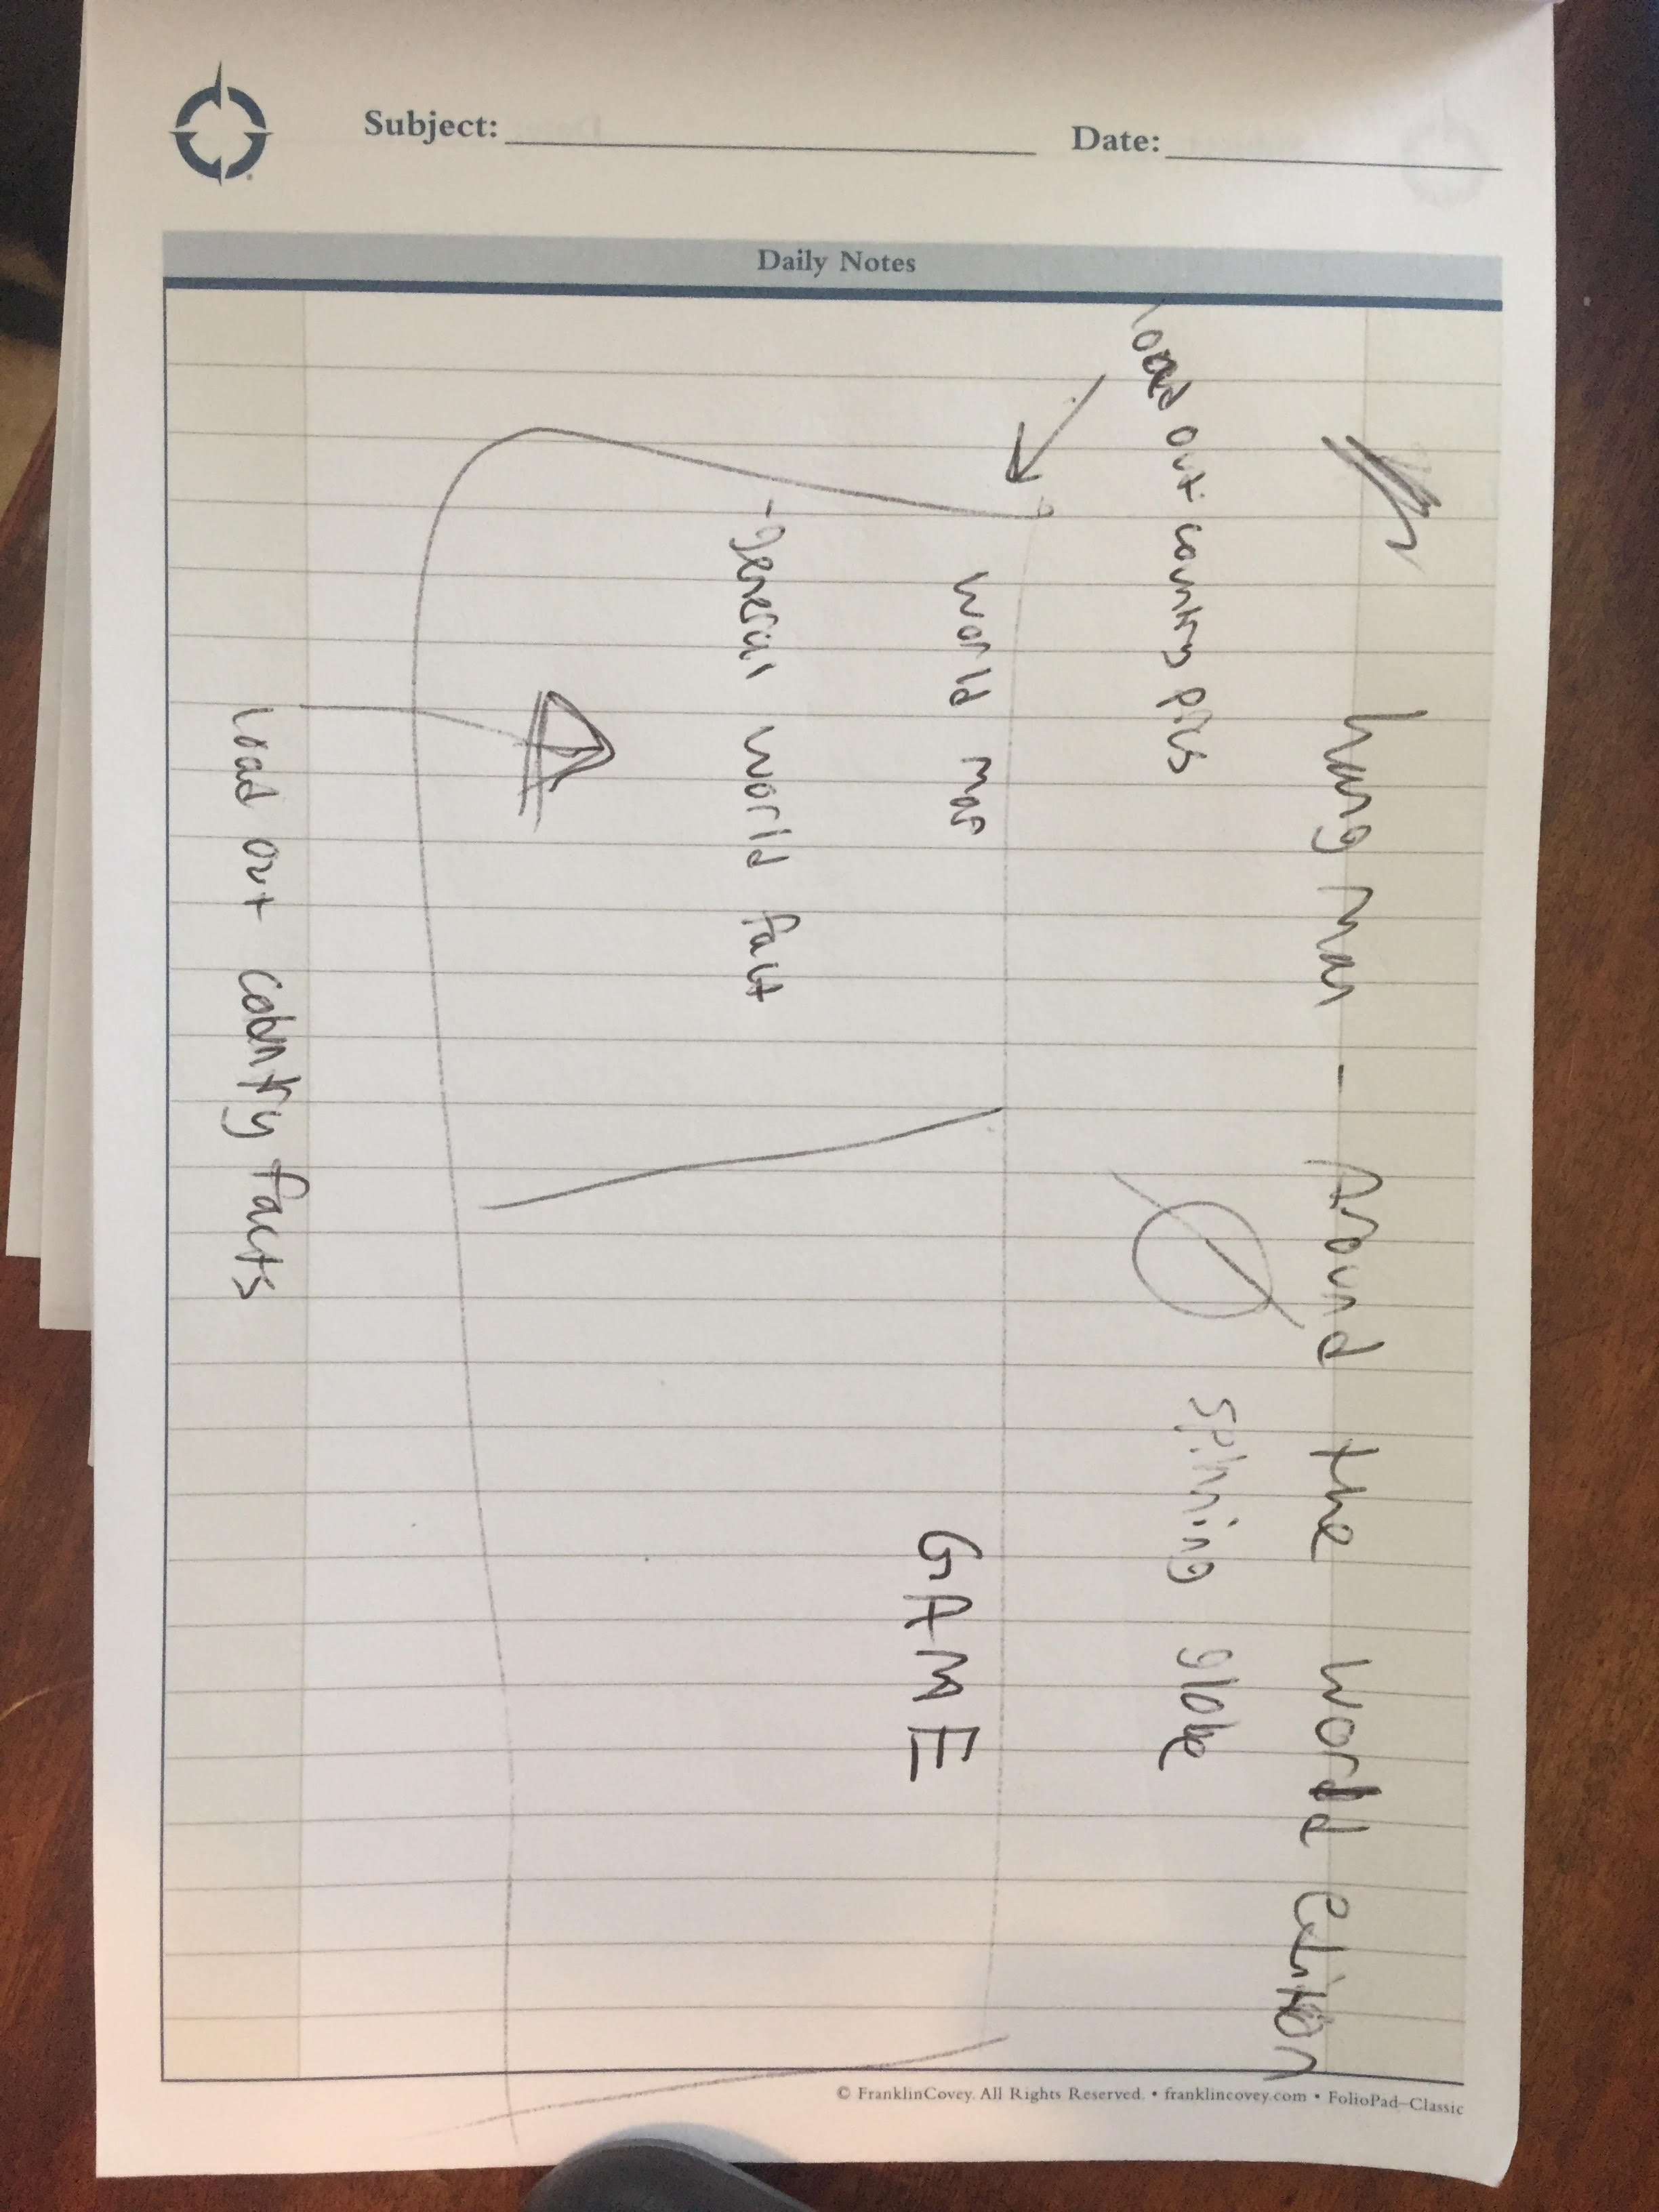 Subject:
Date:
Daily Notes
hang man - Around the world edition
load out country pics
spinning globe
world map
GAME
-general world fact
load out country facts
© FranklinCovey. All Rights Reserved. • franklincovey.com • FolioPad–Classic